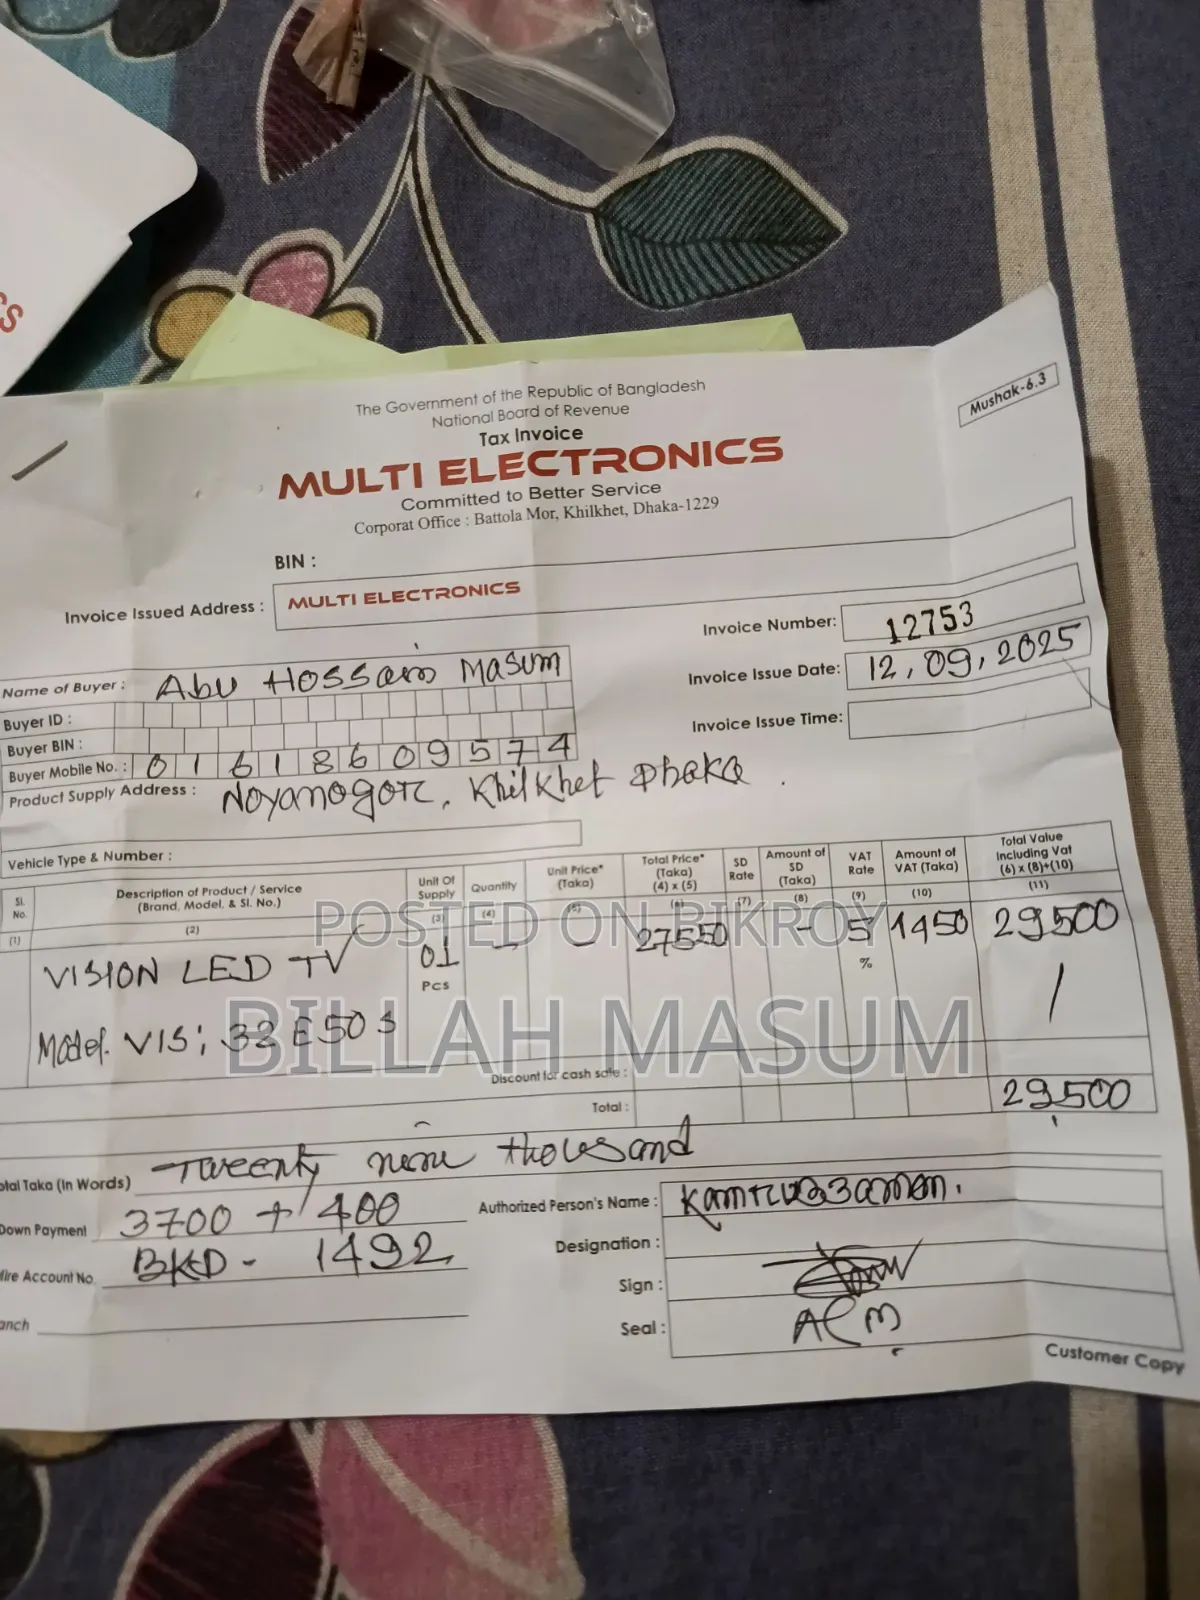 The Government of the Republic of Bangladesh
National Board of Revenue
Mushak-6.3
Tax Invoice
MULTI ELECTRONICS
Committed to Better Service
Corporat Office : Battola Mor, Khilkhet, Dhaka-1229
BIN :
Invoice Issued Address : MULTI ELECTRONICS
Invoice Number: 12753
Name of Buyer : Abu Hossain Masum
Invoice Issue Date: 12,09,2025
Buyer ID :
Buyer BIN :
Invoice Issue Time:
Buyer Mobile No. : 01618609574
Product Supply Address : Noyanogor, Khilkhet Dhaka.
Vehicle Type & Number :
Sl. No. Description of Product / Service (Brand, Model, & Sl. No.) Unit Of Supply Quantity Unit Price* (Taka) Total Price* (Taka) (4) x (5) SD Rate Amount of SD (Taka) VAT Rate Amount of VAT (Taka) Total Value Including Vat (6) x (8)+(10)
(1) (2) (3) (4) (5) (6) (7) (8) (9) (10) (11)
VISION LED TV 01 Pcs - - 27550 - 5 % 1450 29500
POSTED ON BIKROY
Model. VIS: 32E50S
BILLAH MASUM
Discount for cash sale :
Total : 29500
otal Taka (In Words) Tweenty nine thousand
Down Payment 3700 + 400
Authorized Person's Name : Kamruzzaman.
ire Account No. BKD - 1492
Designation :
Sign :
anch
Seal : ACM
Customer Copy
CS